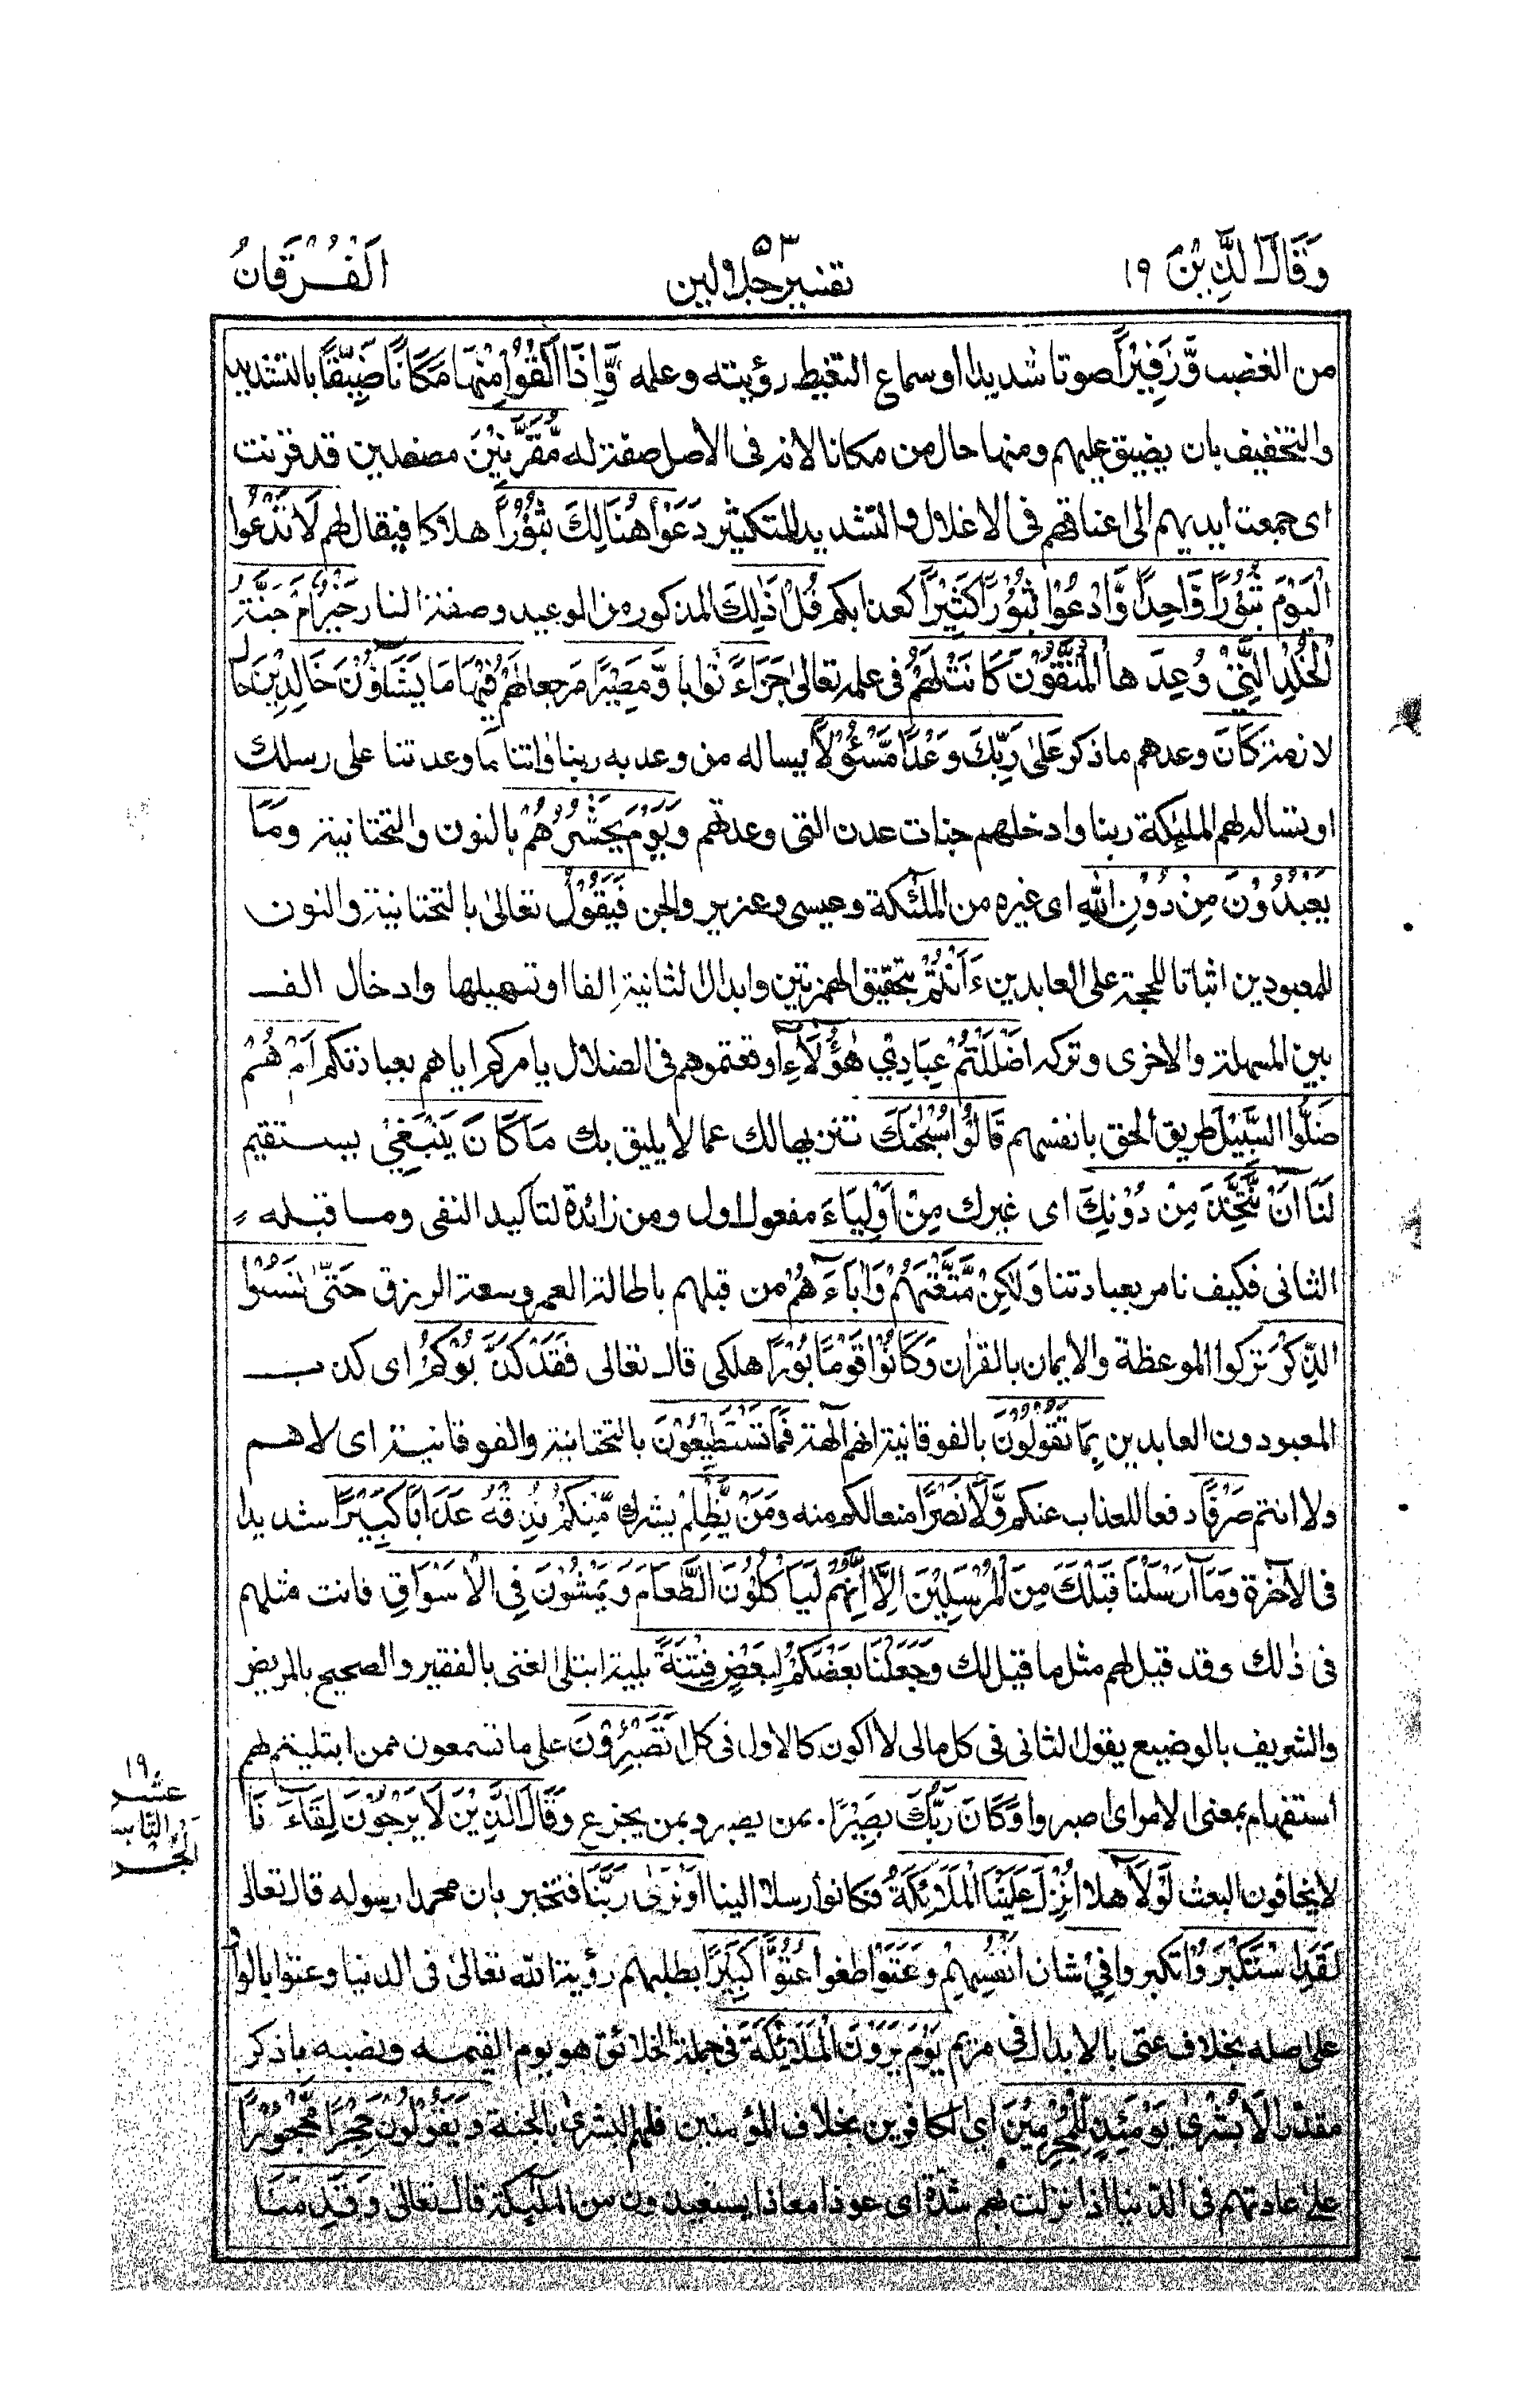 وَقَالَ الَّذِيْنَ ١٩
٥٣
تفسير جلالين
اَلْفُرْقَانُ
من الغضب وَّزَفِيْرًا صوتا شديدا او سماع التغيظ رؤيته وعلمه وَّاِذَا اُلْقُوْا مِنْهَا مَكَانًا ضَيِّقًا بالتشديد
والتخفيف بان يضيق عليهم ومنها حال من مكانا لانه فى الأصل صفة له مُّقَرَّنِيْنَ مصفدين قد قرنت
اى جمعت ايديهم الى اعناقهم فى الاغلال والتشديد للتكثير دَعَوْا هُنَالِكَ ثُبُوْرًا هلاكا فيقال لهم لَا تَدْعُوا
الْيَوْمَ ثُبُوْرًا وَّاحِدًا وَّادْعُوْا ثُبُوْرًا كَثِيْرًا كعذابكم قُلْ اَذٰلِكَ المذكور من الوعيد وصفة النار خَيْرٌ اَمْ جَنَّةُ
الْخُلْدِ الَّتِيْ وُعِدَ ها الْمُتَّقُوْنَ كَانَتْ لَهُمْ فى علمه تعالى جَزَاءً ثوابا وَّمَصِيْرًا مرجعا لَهُمْ فِيْهَا مَا يَشَاؤُنَ خَالِدِيْنَ حال
لازمة كَانَ وعدهم ماذكر عَلٰى رَبِّكَ وَعْدًا مَّسْئُوْلًا يساله من وعد به ربنا واتنا ما وعدتنا على رسلك
او تساله لهم الملئكة ربنا وادخلهم جنات عدن التى وعدتهم وَيَوْمَ يَحْشُرُهُمْ بالنون والتحتانية وَمَا
يَعْبُدُوْنَ مِنْ دُوْنِ اللّٰهِ اى غيره من الملئكة وعيسى وعزير والجن فَيَقُوْلُ تعالى بالتحتانية والنون
للمعبودين اثباتا للحجة على العابدين ءَاَنْتُمْ بتحقيق الهمزتين وابدال الثانية الفا او تسهيلها وادخال الف
بين المسهلة والاخرى وتركه اَضْلَلْتُمْ عِبَادِيْ هٰؤُلَاءِ اوقعتموهم فى الضلال يامركم اياهم بعبادتكم اَمْ هُمْ
ضَلُّوا السَّبِيْلَ طريق الحق بانفسهم قَالُوْا سُبْحٰنَكَ تنزيها لك عما لا يليق بك مَا كَانَ يَنْبَغِيْ يستقيم
لَنَا اَنْ نَّتَّخِذَ مِنْ دُوْنِكَ اى غيرك مِنْ اَوْلِيَاءَ مفعول اول ومن زائدة لتاكيد النفى وما قبله
الثانى فكيف نامر بعبادتنا وَلٰكِنْ مَّتَّعْتَهُمْ وَاٰبَآءَهُمْ من قبلهم باطالة العمر وسعة الرزق حَتّٰى نَسُوْا
الذِّكْرَ تركوا الموعظة والايمان بالقران وَكَانُوْا قَوْمًا بُوْرًا هلكى قال تعالى فَقَدْ كَذَّبُوْكُمْ اى كذب
المعبودون العابدين بِمَا تَقُوْلُوْنَ بالفوقانية انهم آلهة فَمَا تَسْتَطِيْعُوْنَ بالتحتانية والفوقانية اى لا هم
ولا انتم صَرْفًا دفعا للعذاب عنكم وَّلَا نَصْرًا منعا لكم منه وَمَنْ يَّظْلِمْ يشرك مِّنْكُمْ نُذِقْهُ عَذَابًا كَبِيْرًا شديدا
فى الآخرة وَمَآ اَرْسَلْنَا قَبْلَكَ مِنَ الْمُرْسَلِيْنَ اِلَّا اِنَّهُمْ لَيَاْكُلُوْنَ الطَّعَامَ وَيَمْشُوْنَ فِي الْاَسْوَاقِ فانت مثلهم
فى ذٰلك وقد قيل لهم مثل ما قيل لك وَجَعَلْنَا بَعْضَكُمْ لِبَعْضٍ فِتْنَةً بلية ابتلى الغنى بالفقير والصحيح بالمريض
والشريف بالوضيع يقول الثانى فى كل مالى لا اكون كالاول فى كل اَتَصْبِرُوْنَ على ما تسمعون ممن ابتليتم بهم
استفهام بمعنى الامر اى اصبروا وَكَانَ رَبُّكَ بَصِيْرًا. بمن يصبر وبمن يجزع وَقَالَ الَّذِيْنَ لَا يَرْجُوْنَ لِقَآءَنَا
لا يخافون البعث لَوْلَا هلا اُنْزِلَ عَلَيْنَا الْمَلَائِكَةُ فكانوا رسلا الينا اَوْ نَرٰى رَبَّنَا فتخبر بان محمدا رسوله قال تعالى
لَقَدِ اسْتَكْبَرُوْا تكبروا فِيْ شان اَنْفُسِهِمْ وَعَتَوْا طغوا عُتُوًّا كَبِيْرًا بطلبهم رؤية الله تعالى فى الدنيا وعتوا بالواو
على اصله بخلاف عتى بالابدال فى مريم يَوْمَ يَرَوْنَ الْمَلَائِكَةَ فى جملة الخلائق هو يوم القيمه ونصبه باذكر
مقدرا لَا بُشْرٰى يَوْمَئِذٍ لِّلْمُجْرِمِيْنَ اى الكافرين بخلاف المؤمنين فلهم البشرى بالجنة وَيَقُوْلُوْنَ حِجْرًا مَّحْجُوْرًا
على عادتهم فى الدنيا اذا نزلت بهم شدة اى عوذا معاذا يستعيذون من الملئكة قال تعالى وَقَدِمْنَا
١٩
الجزء
التاسع
عشر